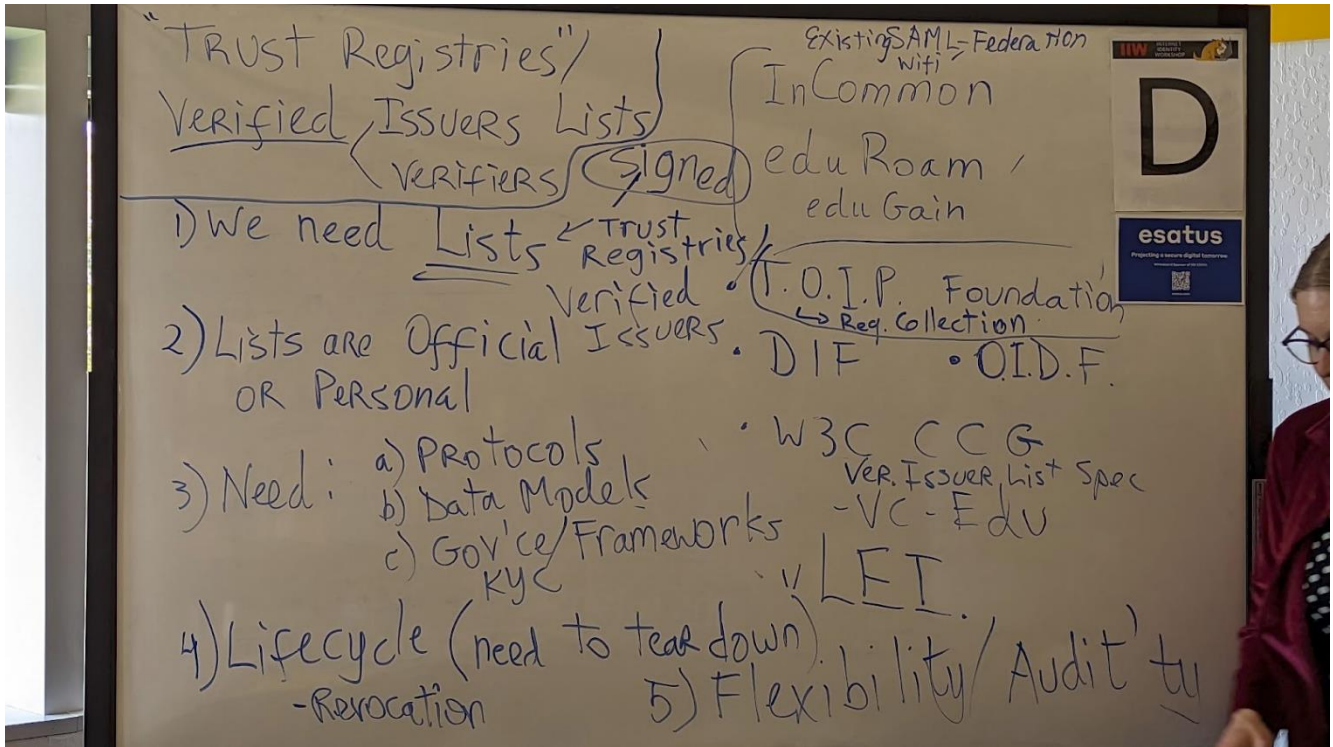 "Trust Registries"/
Verified Issuers Lists
Verifiers
Signed
1) We need Lists
Trust
Registries/
Verified
Issuers
2) Lists are Official
OR Personal
3) Need:
a) Protocols
b) Data Models
c) Gov'ce/Frameworks
KYC
4) Lifecycle (need to tear down)
-Revocation
5) Flexibility/Audit'ty
Existing SAML-Federation
Wifi
InCommon
eduRoam /
eduGain
• T.O.I.P. Foundation
↳ Req. Collection
• DIF • O.I.D.F.
• W3C CCG
Ver. Issuer List Spec
-VC-Edu
LEI.
IIW INTERNET
IDENTITY
WORKSHOP
D
esatus
Projecting a secure digital tomorrow